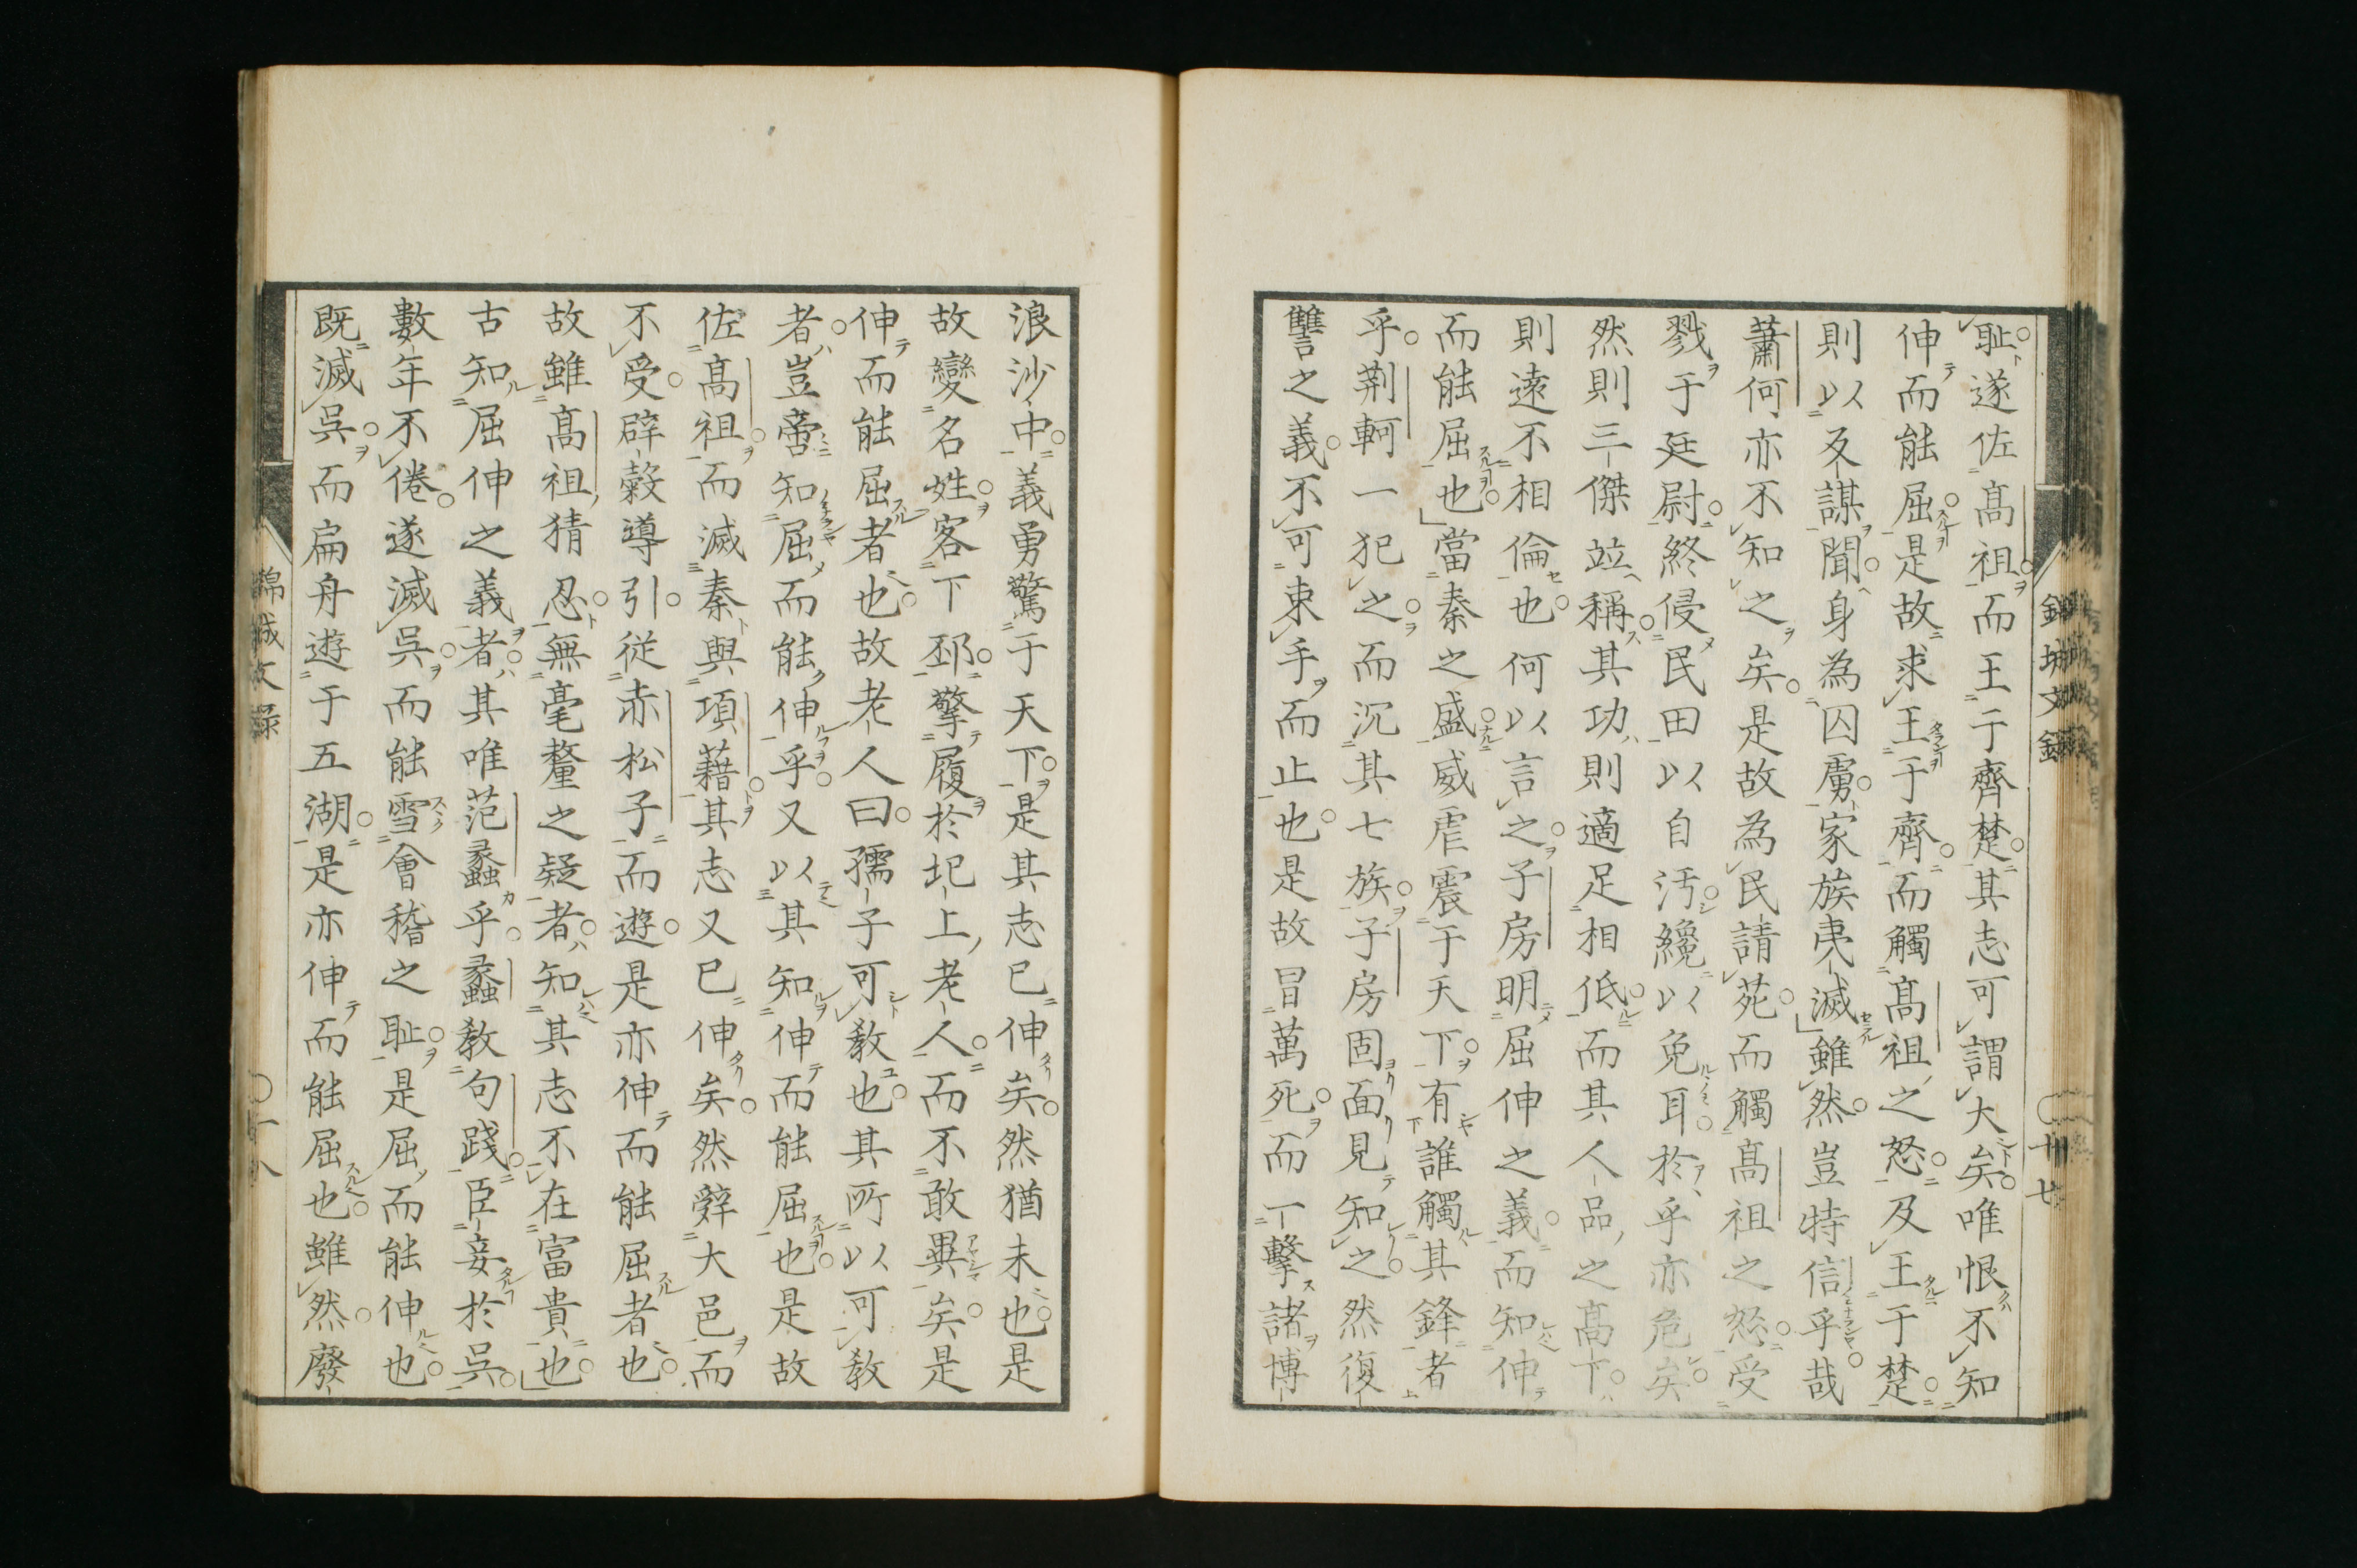 耻遂佐髙祖而王于齊楚其志可謂大矣唯恨不知
伸而能屈是故求王于齊而觸髙祖之怒及王于楚
則以反謀聞身為囚虜家族夷滅雖然豈特信乎哉
蕭何亦不知之矣是故為民請苑而觸髙祖之怒受
戮于廷尉終侵民田以自汚纔以免耳於乎亦危矣
然則三傑竝稱其功則適足相低而其人品之髙下
則遠不相倫也何以言之子房明屈伸之義而知伸
而能屈也當秦之盛威虐震于天下有誰觸其鋒者
乎荆軻一犯之而沉其七族子房固面見知之然復
讐之義不可束手而止也是故冒萬死而一擊諸博
浪沙中義勇驚于天下是其志已伸矣然猶未也是
故變名姓客下邳擎履於圯上老人而不敢異矣是
伸而能屈者也故老人曰孺子可教也其所以可教
者豈啻知屈而能伸乎又以其知伸而能屈也是故
佐髙祖而滅秦與項藉其志又已伸矣然辤大邑而
不受辟穀導引従赤松子而遊是亦伸而能屈者也
故雖髙祖猜忍無毫釐之疑者知其志不在富貴也
古知屈伸之義者其唯范蠡乎蠡教句踐臣妾於呉
數年不倦遂滅呉而能雪會稽之耻是屈而能伸也
既滅呉而扁舟遊于五湖是亦伸而能屈也雖然廢
錦城文録
十七
錦城文録
十八